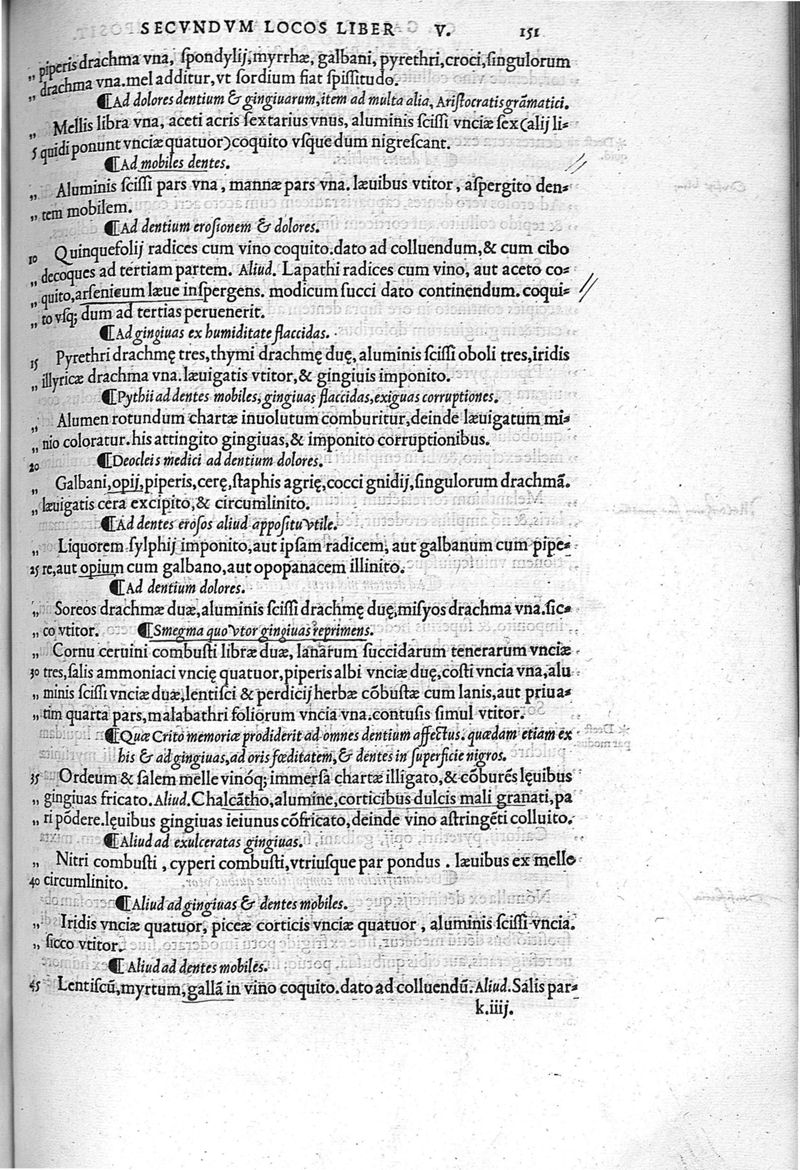 SECVNDVM LOCOS LIBER V. 151
„ piperis drachma vna, spondylij, myrrhæ, galbani, pyrethri, croci, singulorum
„ drachma vna. mel additur, vt sordium fiat spissitudo.
¶Ad dolores dentium & gingiuarum, item ad multa alia, Aristocratis grãmatici.
„ Mellis libra vna, aceti acris sextarius vnus, aluminis scissi vnciæ sex (alij li-
5 quidi ponunt vnciæ quatuor) coquito vsque dum nigrescant.
¶Ad mobiles dentes.
„ Aluminis scissi pars vna, mannæ pars vna. læuibus vtitor, aspergito den-
„ tem mobilem.
¶Ad dentium erosionem & dolores.
10 Quinquefolij radices cum vino coquito. dato ad colluendum, & cum cibo
„ decoques ad tertiam partem. Aliud. Lapathi radices cum vino, aut aceto co-
„ quito, arsenicum læue inspergens. modicum succi dato continendum. coqui-
„ to vsq; dum ad tertias peruenerit.
¶Ad gingiuas ex humiditate flaccidas.
15 Pyrethri drachmę tres, thymi drachmę duę, aluminis scissi oboli tres, iridis
„ illyricæ drachma vna. læuigatis vtitor, & gingiuis imponito.
¶Pythii ad dentes mobiles, gingiuas flaccidas, exiguas corruptiones.
„ Alumen rotundum chartæ inuolutum comburitur, deinde læuigatum mi-
„ nio coloratur. his attingito gingiuas, & imponito corruptionibus.
20 ¶Deocleis medici ad dentium dolores.
„ Galbani, opij, piperis, cerę, staphis agrię, cocci gnidij, singulorum drachmã.
„ læuigatis cera excipito, & circumlinito.
¶Ad dentes erosos aliud appositu vtile.
„ Liquorem sylphij imponito, aut ipsam radicem, aut galbanum cum pipe-
25 re, aut opium cum galbano, aut opopanacem illinito.
¶Ad dentium dolores.
„ Soreos drachmæ duæ, aluminis scissi drachmę duę, misyos drachma vna. sic-
„ co vtitor. ¶Smegma quo vtor gingiuas reprimens.
„ Cornu ceruini combusti libræ duæ, lanarum succidarum tenerarum vnciæ
30 tres, salis ammoniaci vncię quatuor, piperis albi vnciæ duę, costi vncia vna, alu
„ minis scissi vnciæ duæ, lentisci & perdicij herbæ cõbustæ cum lanis, aut priua-
„ tim quarta pars, malabathri foliorum vncia vna. contusis simul vtitor.
¶Quæ Crito memoriæ prodiderit ad omnes dentium affectus. quædam etiam ex
his & ad gingiuas, ad oris fœditatem, & dentes in superficie nigros.
35 Ordeum & salem melle vinóq; immersa chartæ illigato, & cõburẽs lęuibus
„ gingiuas fricato. Aliud. Chalcãtho, alumine, corticibus dulcis mali granati, pa
„ ri põdere. lęuibus gingiuas ieiunus cõfricato, deinde vino astringẽti colluito.
¶Aliud ad exulceratas gingiuas.
„ Nitri combusti, cyperi combusti, vtriusque par pondus. læuibus ex melle
40 circumlinito.
¶Aliud ad gingiuas & dentes mobiles.
„ Iridis vnciæ quatuor, piceæ corticis vnciæ quatuor, aluminis scissi vncia.
„ sicco vtitor.
¶Aliud ad dentes mobiles.
45 Lentiscũ, myrtum, gallã in vino coquito. dato ad colluendũ. Aliud. Salis par-
k.iiij.